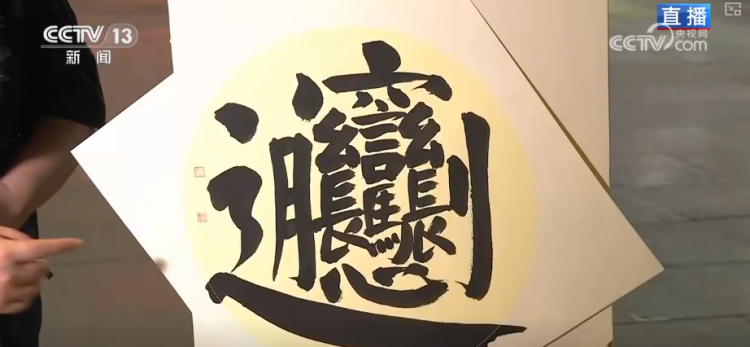 CCTV 13
新闻
直播
央视网
CCTV.com
𰻝